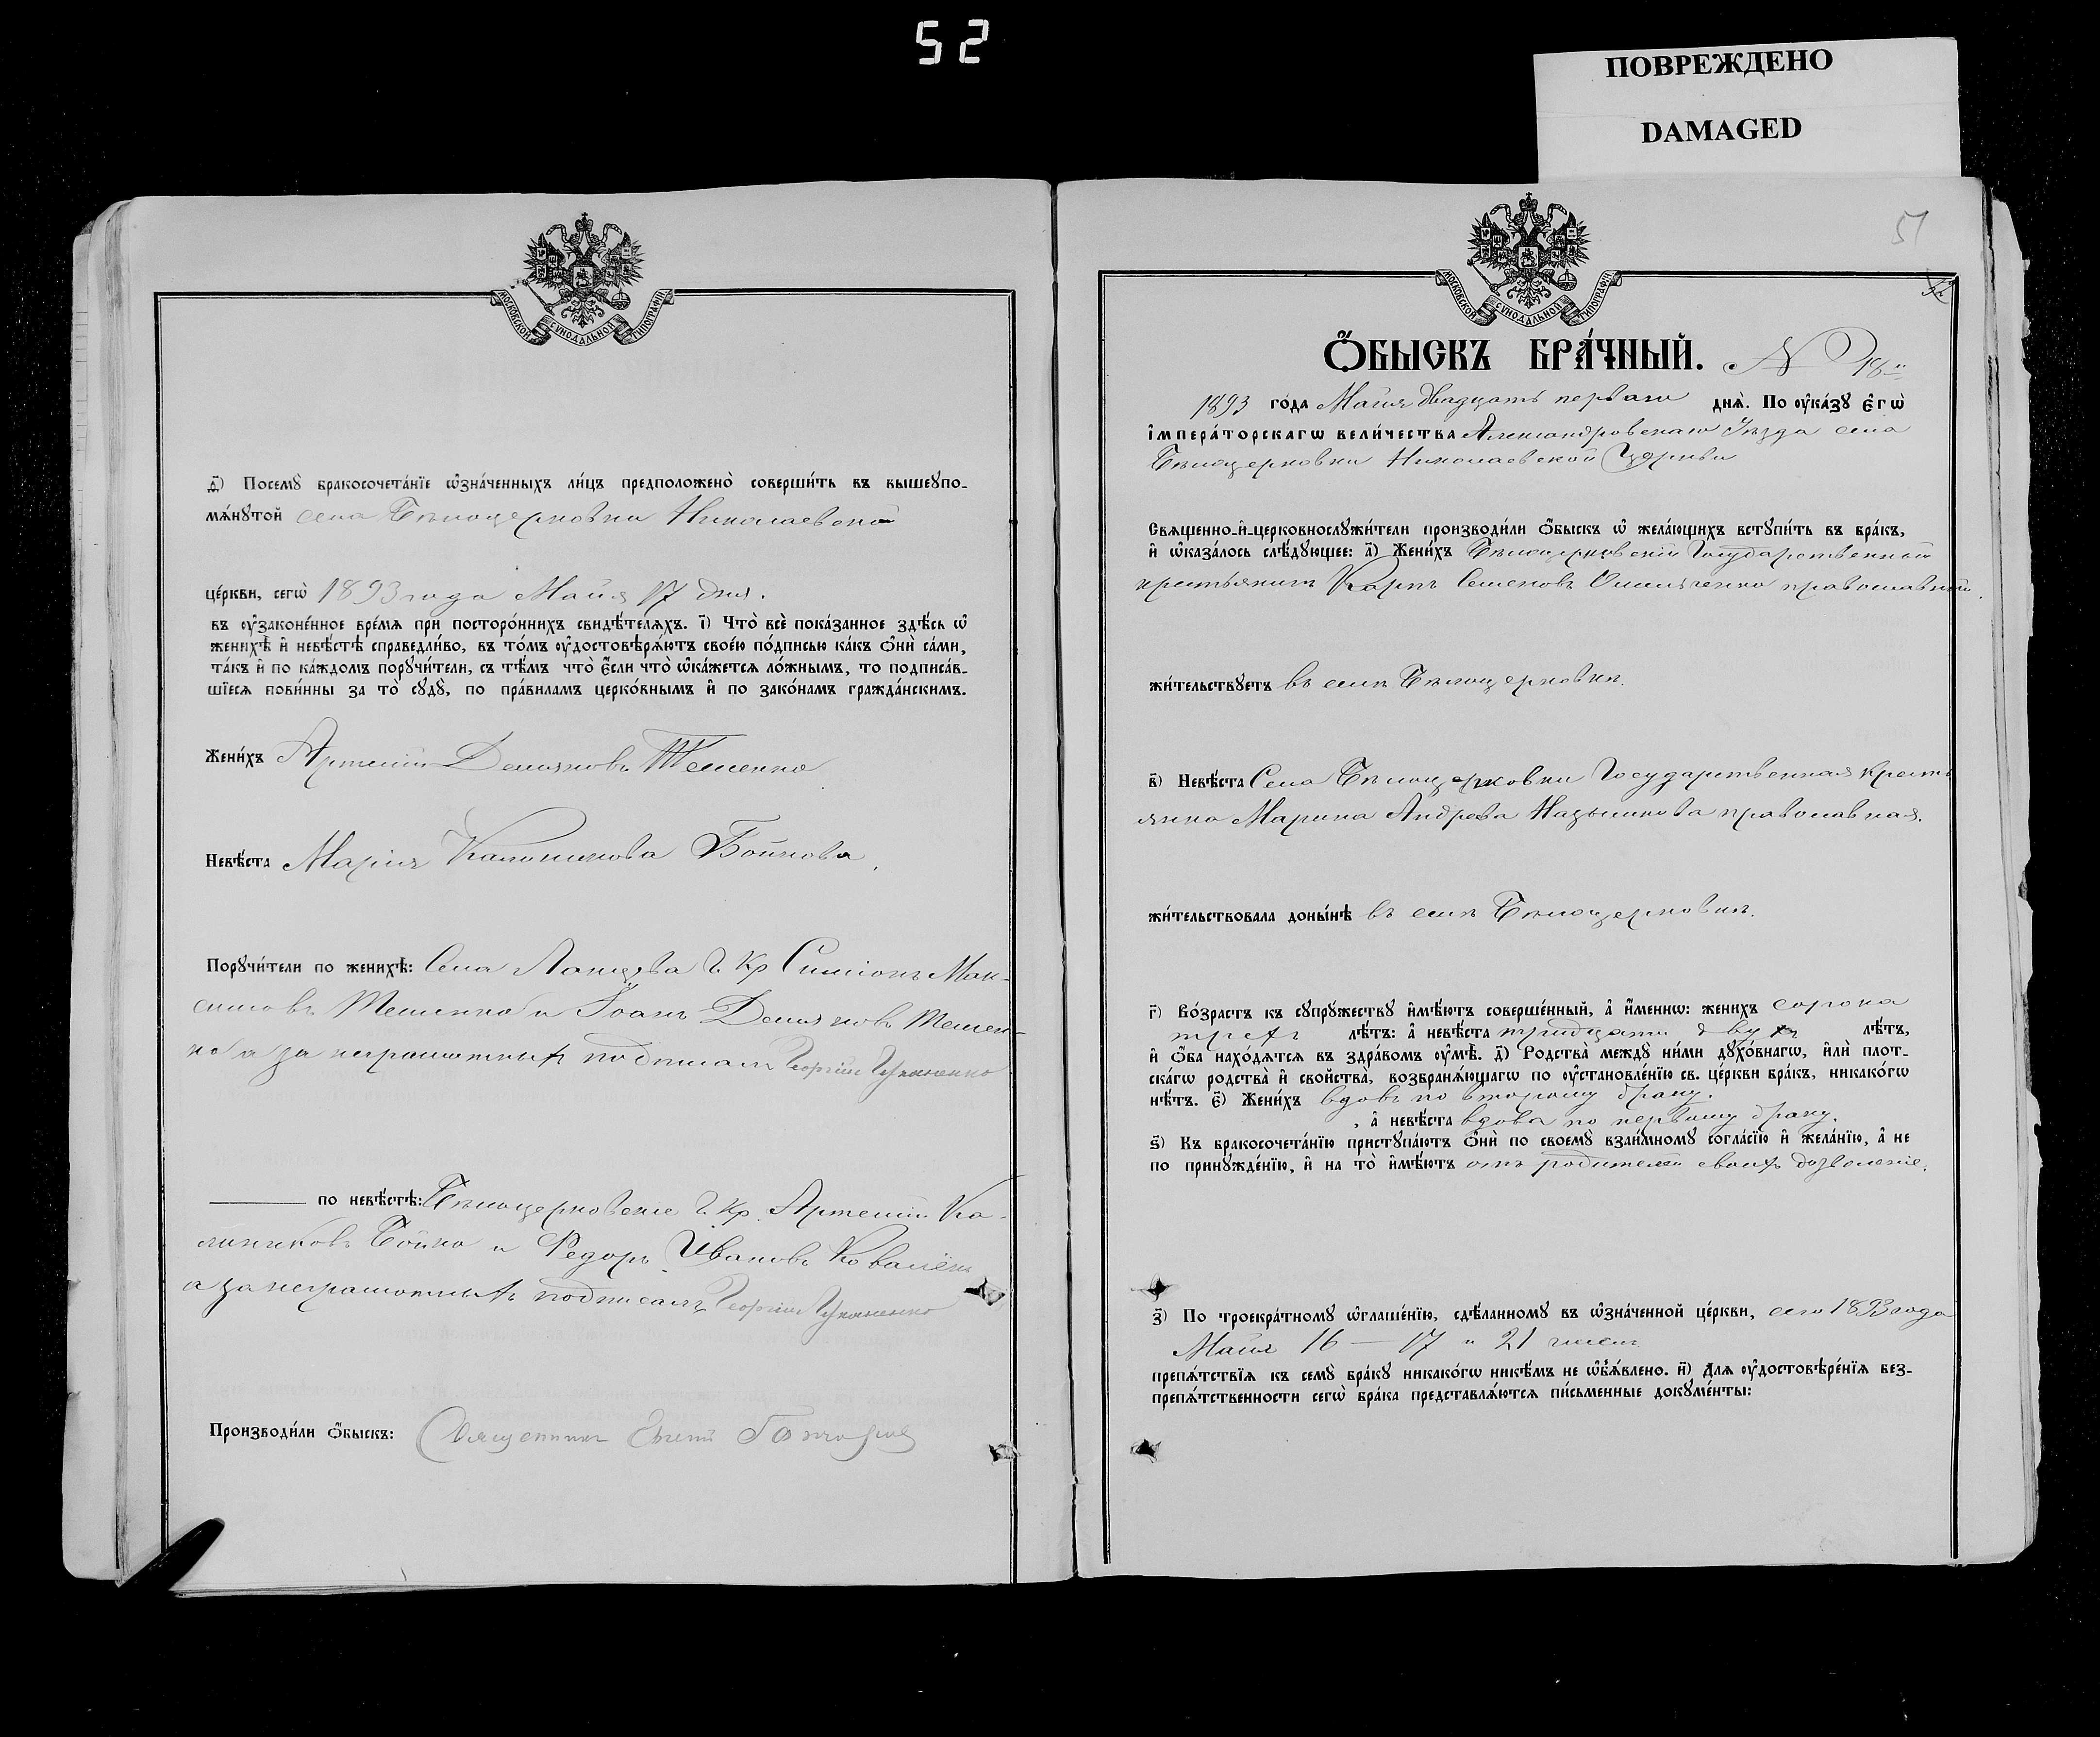 52
ПОВРЕЖДЕНО
DAMAGED
МОСКОВСКОЙ СѴНОДАЛЬНОЙ ТИПОГРАФІИ
д҃) Посемꙋ̀ бракосочета́нїе ѡ҆зна́ченныхъ ли́цъ предположено̀ соверши́ть въ вышеꙋпо-
мѧ́нꙋтой села Бѣлоцерковки Николаевской
це́ркви, сегѡ̀ 1893 года Мая 17 дня.
въ ᲂу҆законе́нное вре́мѧ при посторо́ннихъ свидѣ́телѧхъ. і҃) Что̀ всѐ пока́занное здѣ́сь ѡ҆
женихѣ̀ и҆ невѣ́стѣ справедли́во, въ то́мъ ᲂу҆достовѣрѧ́ютъ свое́ю по́дписью ка́къ ѻ҆нѝ са́ми,
та́къ и҆ по ка́ждомъ порꙋчи́тели, съ тѣ́мъ что̀ є҆́сли что̀ ѡ҆ка́жетсѧ ло́жнымъ, то подписа́в-
шїесѧ пови́нны за то̀ сꙋдꙋ̀, по пра́виламъ церко́внымъ и҆ по зако́намъ гражда́нскимъ.
Жени́хъ Артемій Демяновъ Тененко
Невѣ́ста Марія Калиникова Бойкова.
Порꙋчи́тели по женихѣ̀: Села Г. Кр Симіонъ Мак-
симовъ и Іоанъ Демяновъ
а за неграмотныхъ подписалъ Георгій
по невѣ́стѣ: Бѣлоцерковскіе Г. Кр. Артемій Ка-
лениковъ Бойко и Федоръ Ивановъ
а за неграмотныхъ подписалъ Георгій
Произво́дили ѻ҆́быскъ: Священникъ Евгеній
51
52
Ѻ҆́БЫСКЪ БРА́ЧНЫЙ. N 18й
1893 го́да Маія двадцать перваго днѧ̀. По ᲂу҆ка́зꙋ є҆гѡ̀
і҆мпера́торскагѡ вели́чества Александровскаго Уѣзда села
Бѣлоцерковки Николаевской Церкви
Свѧще́нно-и҆-церковнослꙋжи́тели производи́ли ѻ҆́быскъ ѡ҆ жела́ющихъ встꙋпи́ть въ бра́къ,
и҆ ѡ҆каза́лось слѣ́дꙋющее: а҃) Жени́хъ Бѣлоцерковскій Государственный
крестьянинъ Карпъ Семеновъ Омельченко православный.
жи́тельствꙋетъ въ селѣ Бѣлоцерковки.
в҃) Невѣ́ста Села Бѣлоцерковки Государственная Кресть
янка Марина Андрева православная.
жи́тельствовала доны́нѣ въ селѣ Бѣлоцерковки.
г҃) Во́зрастъ къ сꙋпрꙋ́жествꙋ и҆мѣ́ютъ соверше́нный, а҆ и҆́меннѡ: женихъ сорока
трехъ лѣ́тъ: а҆ невѣ́ста тридцати двухъ лѣ́тъ,
и҆ ѻ҆́ба нахо́дѧтсѧ въ здра́вомъ ᲂу҆мѣ̀. д҃) Родства̀ междꙋ̀ ни́ми дꙋхо́внагѡ, и҆лѝ плот-
ска́гѡ родства̀ и҆ сво́йства, возбранѧ́ющагѡ по ᲂу҆становле́нїю св. це́ркви бра́къ, никако́гѡ
нѣ́тъ. є҃) Жени́хъ вдовъ по второму браку.
, а҆ невѣ́ста вдова по первому браку.
ѕ҃) Къ бракосочета́нїю пристꙋпа́ютъ ѻ҆нѝ по своемꙋ̀ взаи́мномꙋ согла́сїю и҆ жела́нїю, а҆ не
по принꙋжде́нїю, и҆ на то̀ и҆мѣ́ютъ отъ родителей своихъ дозволеніе.
з҃) По троекра́тномꙋ ѡ҆глаше́нїю, сдѣ́ланномꙋ въ ѡ҆зна́ченной це́ркви, сего 1893 года
Маія 16 — 17 и 21 чиселъ
препѧ́тствїѧ къ семꙋ̀ бра́кꙋ никако́гѡ никѣ́мъ не ѡ҆б̾ѧ́влено. и҃) Длѧ ᲂу҆достовѣре́нїѧ без-
препѧ́тственности сегѡ̀ бра́ка представлѧ́ютсѧ пи́сьменные докꙋме́нты: